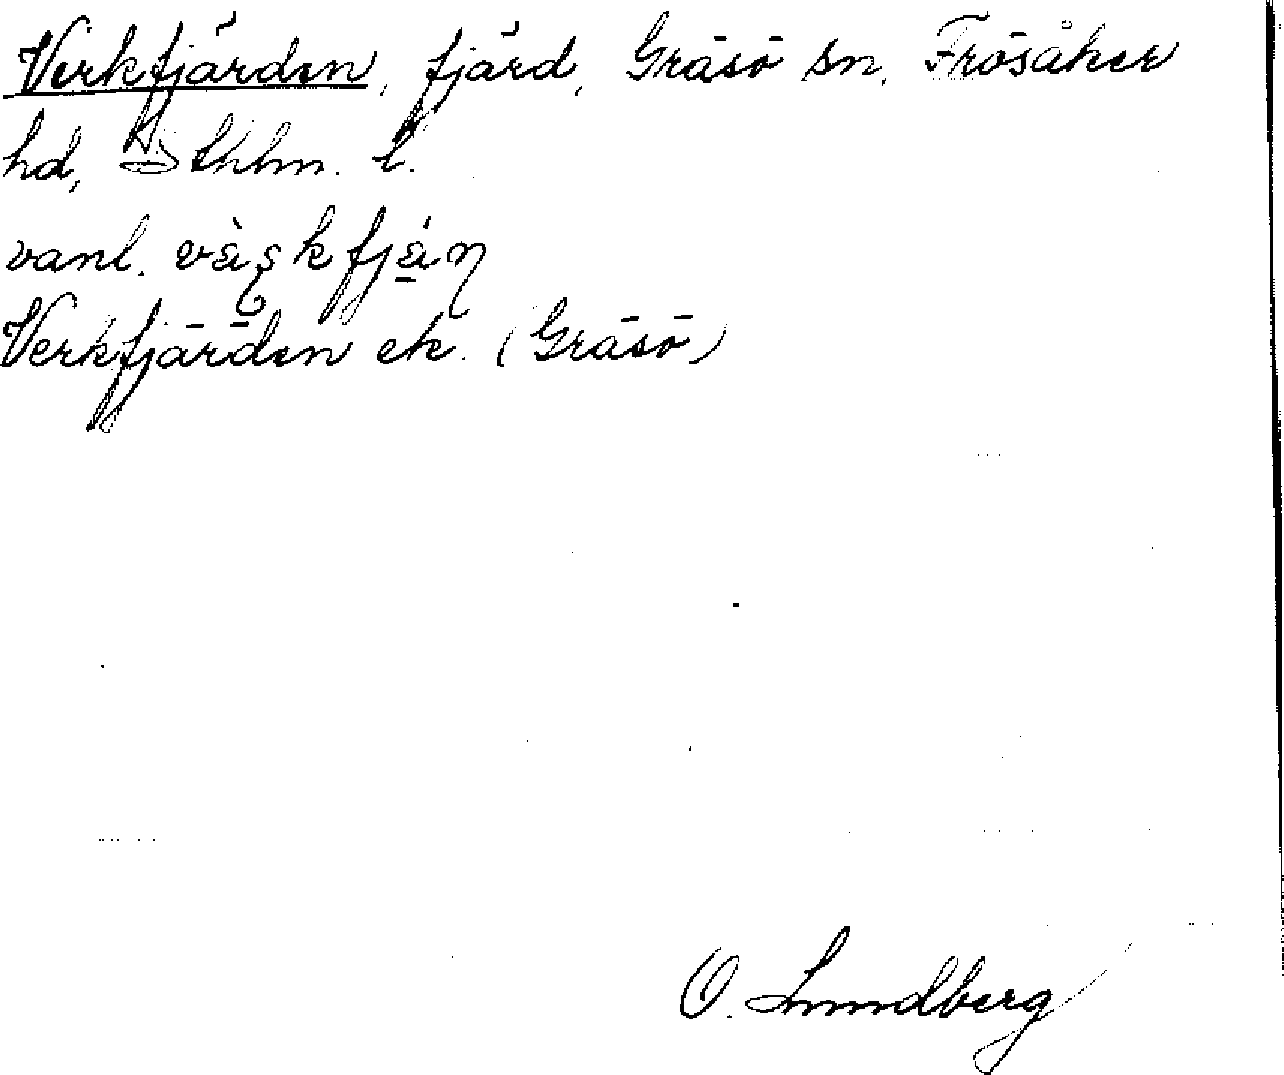 Verkfjärden, fjärd, Gräsö sn, Frösåker
hd, Sthlm. l.
vanl.
Verkfjärden ek. (Gräsö)
O. Lundberg